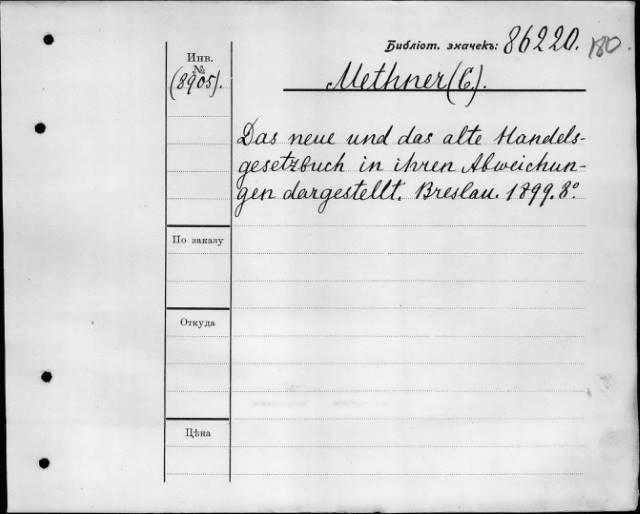 Библіот. значекъ: 86220. 180.
Инв.
№
(8905).
Methner (E.).
Das neue und das alte Handels-
gesetzbuch in ihren Abweichun-
gen dargestellt. Breslau. 1899. 8º.
По заказу
Откуда
Цѣна